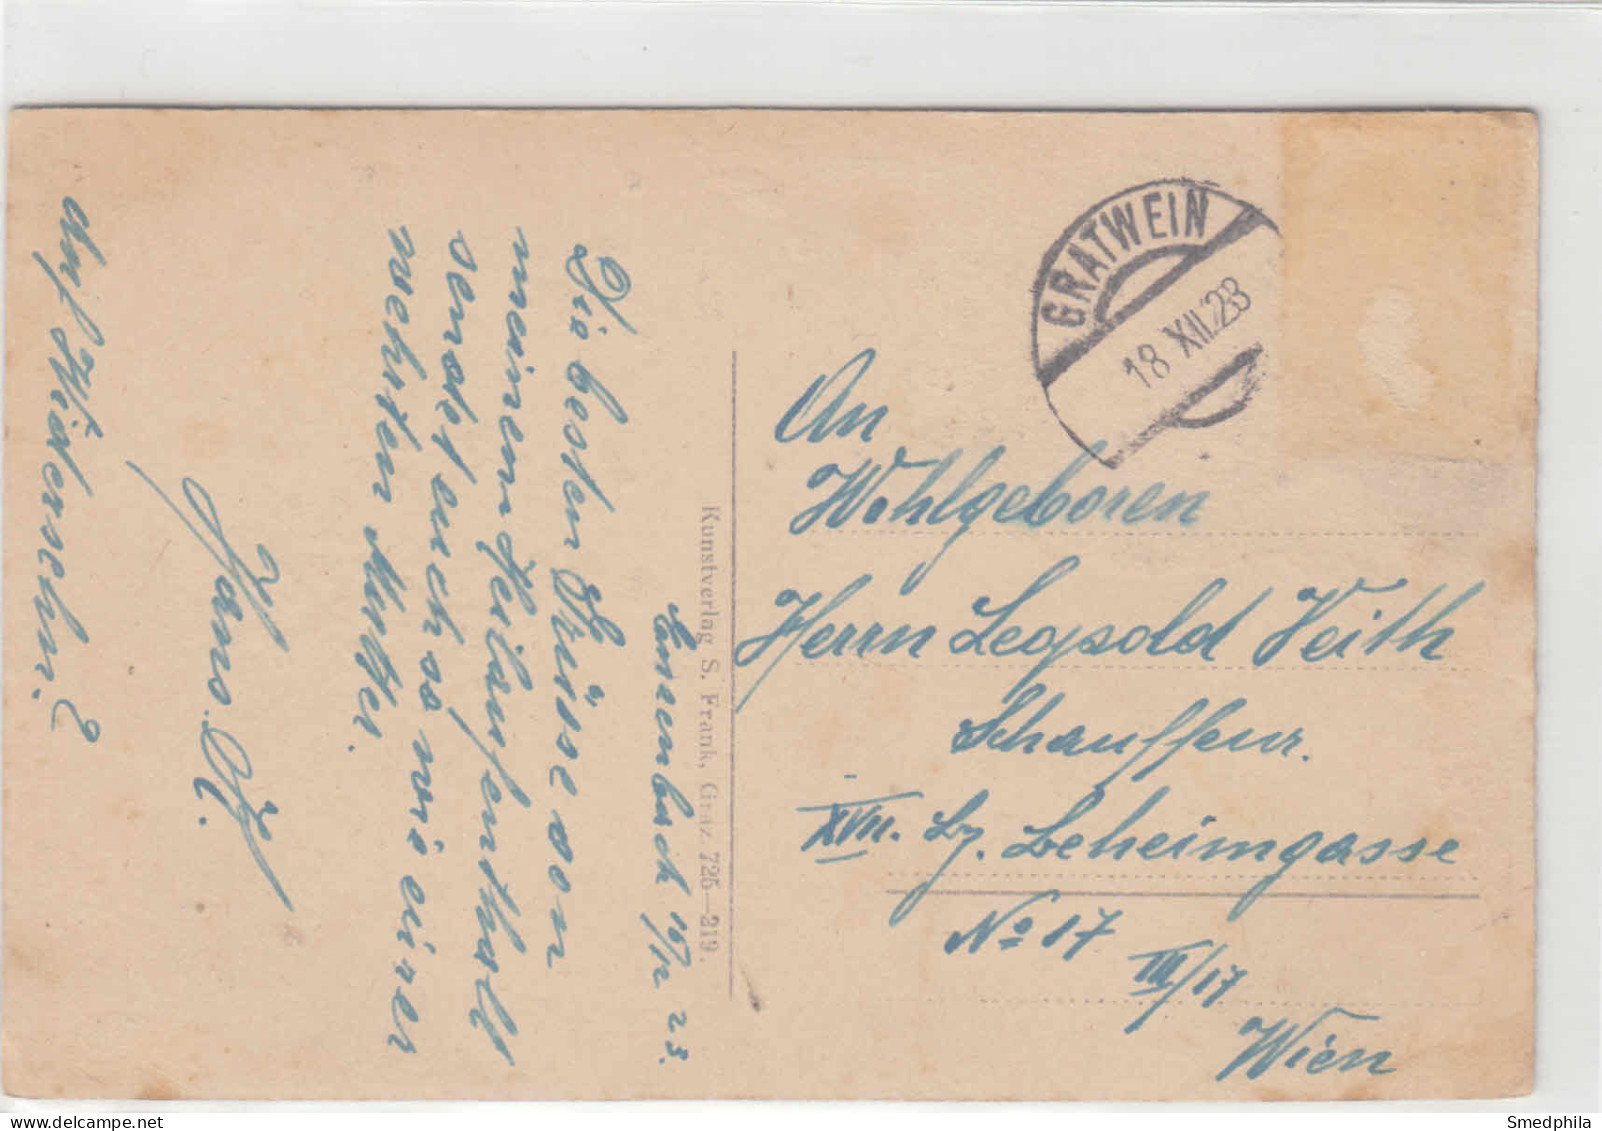 Die besten Grüsse von
meinem Heilaufenthalt
sendet euch so wie einer
wehrten Mutter.
Hans
Auf Widersehn!
16/12 23.
Kunstverlag S. Frank, Graz. 725—219.
GRATWEIN
18 XII.23
An
Wohlgeboren
Herrn Leopold Veith
Schauffeur.
XVII. Bz. Beheimgasse
No 17
III/17
Wien
Smedphila